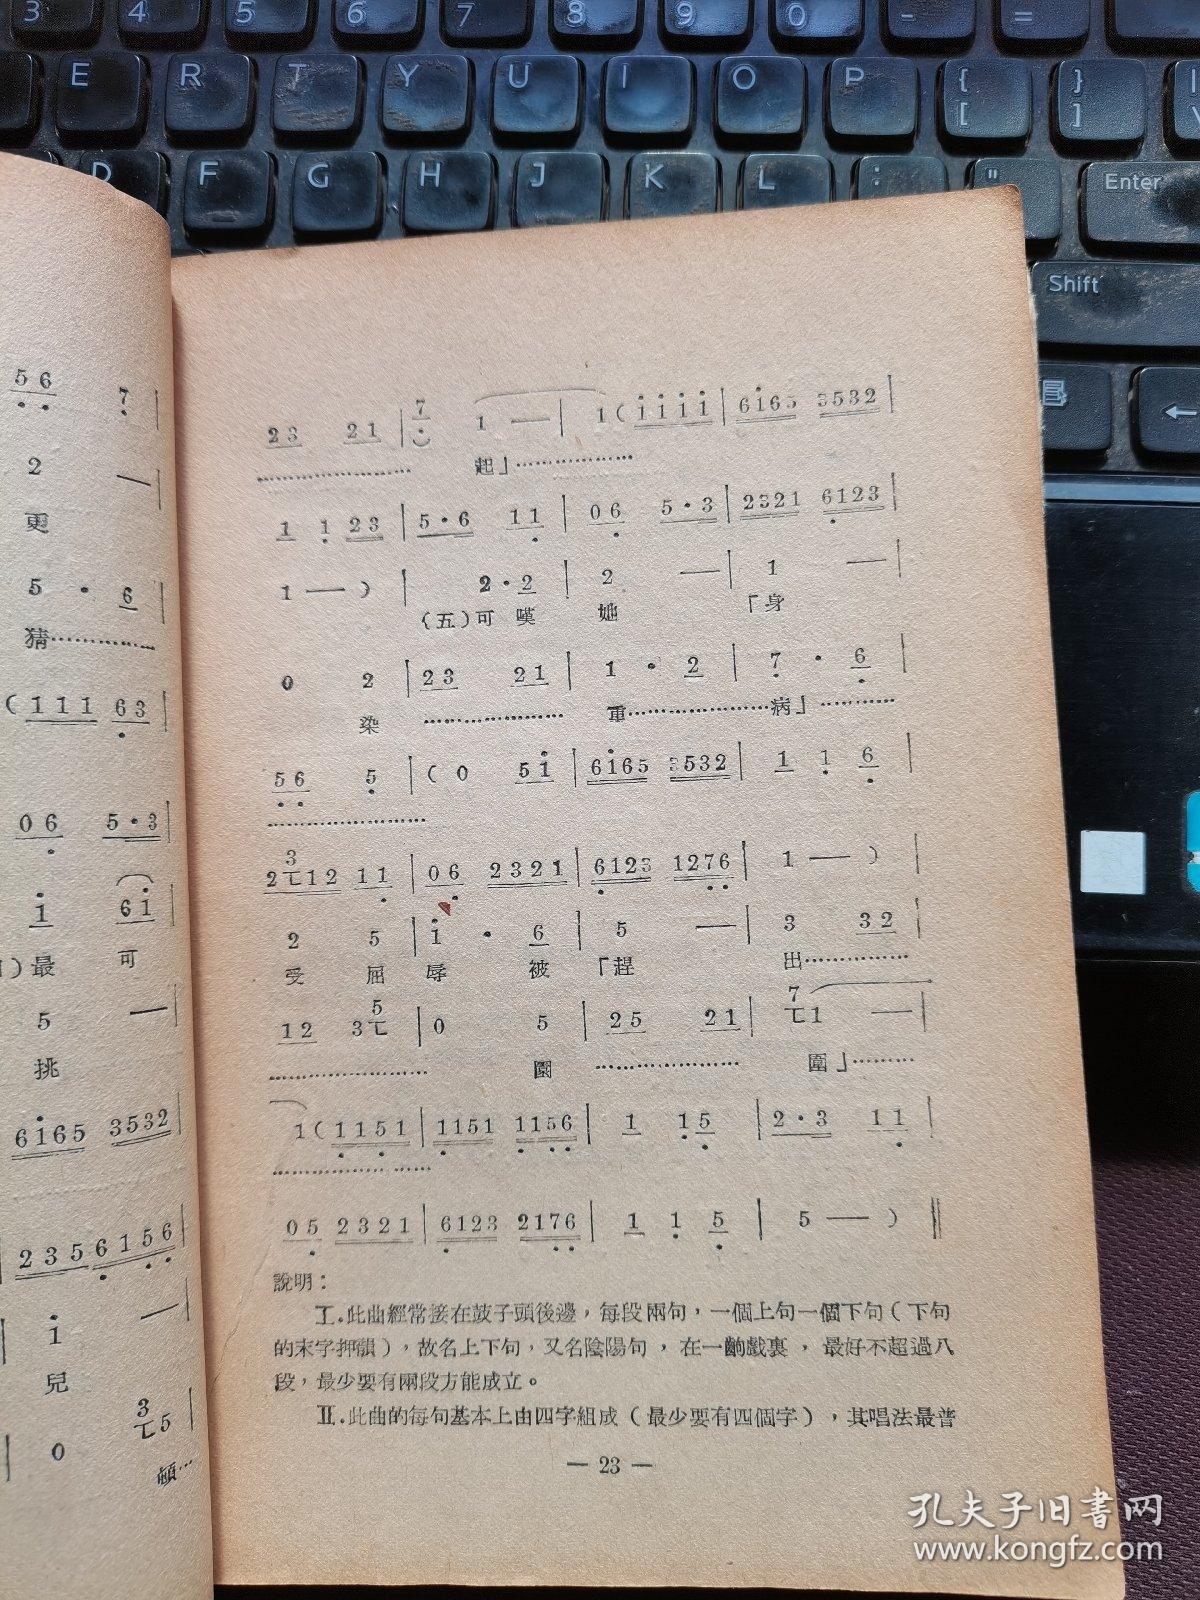 23 21 | 7 1 — | 1 ( i i i i | 6i65 3532 |
起」
1 1 23 | 5·6 11 | 06 5·3 | 2321 6123 |
1 — ) | 2·2 | 2 — | 1 — |
(五)可嘆 她 「身
0 2 | 23 21 | 1 · 2 | 7 · 6 |
染 ………… 重…………病」………
56 5 | ( 0 5i | 6i65 3532 | 1 1 6 |
3
2 12 11 | 06 2321 | 6123 1276 | 1 — ) |
2 5 | i · 6 | 5 — | 3 32 |
受 屈 辱 被 「趕 出…………
12 3 5 | 0 5 | 25 21 | 7 1 — |
………… 園 ………… 圍」………
1 ( 1151 | 1151 1156 | 1 15 | 2·3 11 |
05 2321 | 6123 2176 | 1 1 5 | 5 — ) ‖
說明：
I.此曲經常接在鼓子頭後邊，每段兩句，一個上句一個下句（下句
的末字押韻），故名上下句，又名陰陽句，在一齣戲裏，最好不超過八
段，最少要有兩段方能成立。
II.此曲的每句基本上由四字組成（最少要有四個字），其唱法最普
— 23 —
56 7 |
2 — |
更
5 · 6 |
猜…………
( 111 63 |
06 5·3 |
i 6i |
)最 可
5 — |
挑
6i65 3532 |
235 6156 |
i — |
兒
| 0 3 5 |
頓…
3 4 5 6 7 8 9 0 - =
E R T Y U I O P { [ } ]
D F G H J K L : ; " Enter
Shift
孔夫子旧書网
www.kongfz.com